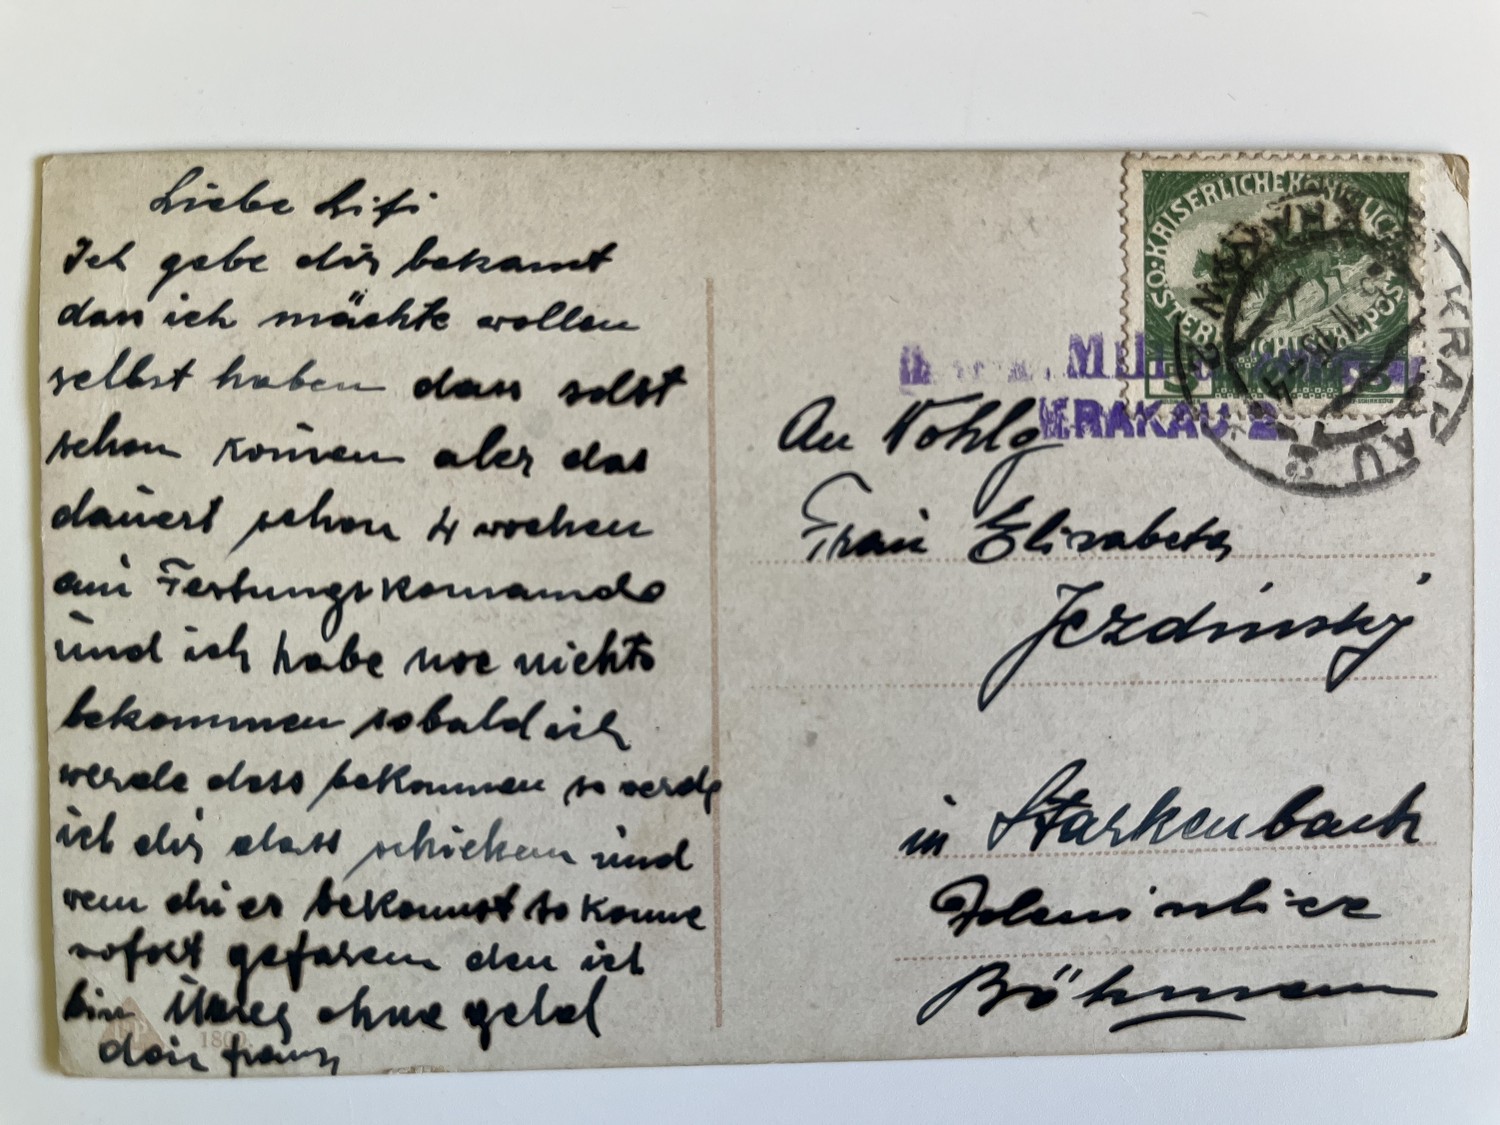 Liebe Lisi
Ich gebe dir bekannt
dass ich möchte wollen
selbst haben dass solst
schon können aber das
dauert schon 4 wochen
am Festungskomando
und ich habe noc nichts
bekommen sobald ich
werde dass bekommen so werde
ich dir dass schicken und
wen du es bekommst so komme
sofort gefaren den ich
bin ohne geld
dein franz
KAISERLICHE KÖNIGLICHE
ÖSTERREICHISCHE POST
5 5
KRAKAU 2
KRAKAU
An Wohlg
Frau Elisabeta
Jezdinský
in Starkenbach
Böhmen